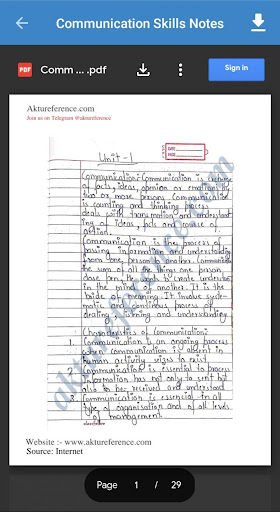 Communication Skills Notes
PDF
Comm ... .pdf
Sign in
Aktureference.com
Join us on Telegram @aktureference
Unit-1
Communication: Communication is exchange
of facts, ideas, opinion or emotions by
two or more persons. Communication
is counting and thinking process
deals with transmation and understand
ing of ideas, facts and course of
action.
Communication is the process of
passing information and understanding
from one person to another. Communication
the sum of all the things one person
dose when He wants to create understanding
in the mind of another. It is the
bridge of meaning. It involve syste-
matic and continous process of
dealing, listening and understanding
Characteristics of Communication:
1. Communication is an ongoing process
when communication is absent in
human activity sizes to exist.
2. Communication is essential to process
information has not only to sent but
also to be received and understand
3. Communication is essential in all
type of organisation and of all levels
of management.
aktureference.com
Website :- www.aktureference.com
Source: Internet
Page 1 / 29